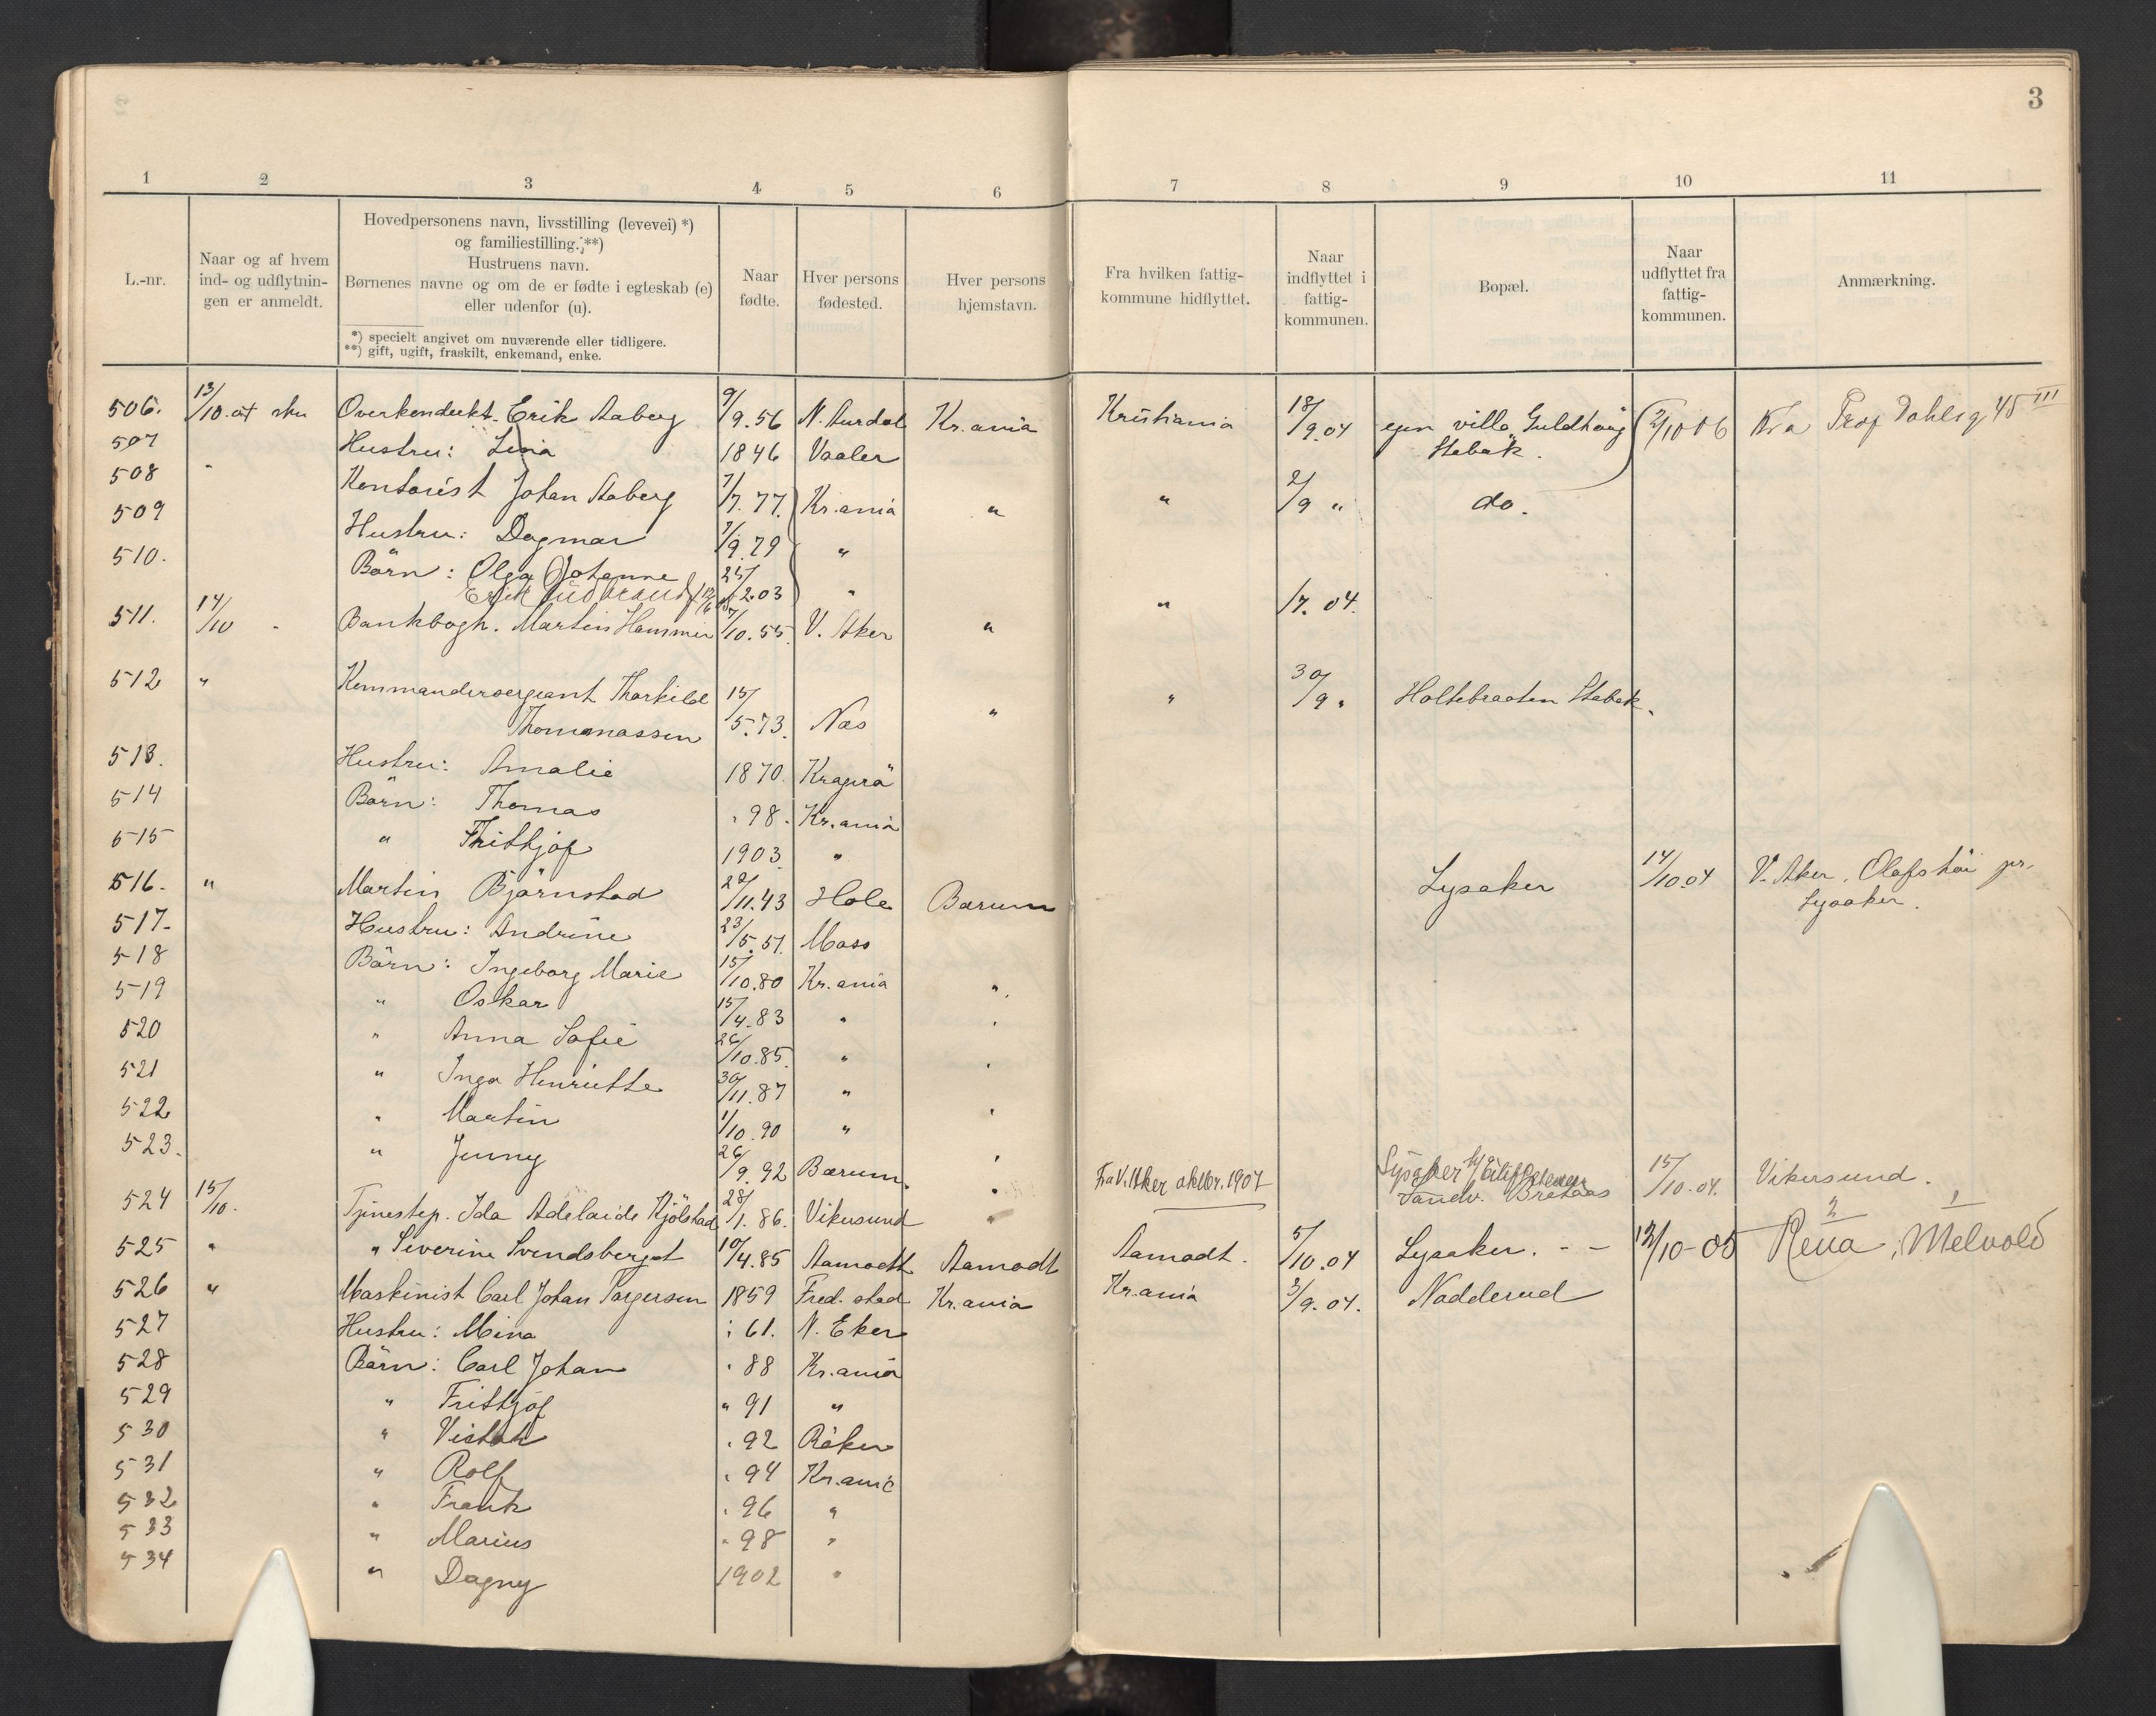 3
1 2 3 4 5 6 7 8 9 10 11
L.-nr.
Naar og af hvem
ind- og udflytnin-
gen er anmeldt.
Hovedpersonens navn, livsstilling (levevei) *)
og familiestilling. **)
Hustruens navn.
Børnenes navne og om de er fødte i egteskab (e)
eller udenfor (u).
*) specielt angivet om nuværende eller tidligere.
**) gift, ugift, fraskilt, enkemand, enke.
Naar
fødte.
Hver persons
fødested.
Hver persons
hjemstavn.
Fra hvilken fattig-
kommune hidflyttet.
Naar
indflyttet i
fattig-
kommunen.
Bopæl.
Naar
udflyttet fra
fattig-
kommunen.
Anmærkning.
506. 13/10.04 Overkondukt. Erik Aaberg 9/9.56 N. Aurdal Kr.ania Kristiania 18/9.04 egen villa Guldhaug Stabæk. 2/10 06 Kra Prof Dahlsg 45 III
507 Hustru: Lina 1846 Vaaler
508 " Kontorist Johan Aaberg 7/7.77. Kr.ania " " 2/9 " do.
509 Hustru: Dagmar 7/9.79 "
510. Børn: Olga Johanne 25/2.03 "
Erik Gudbrand
511. 14/10 " Bankbogh. Martin Hammer 7/10.55 V. Aker " " 1/7. 04.
512 " Kommandersergeant Thorkild
Thommassen 15/5.73. Næs " " 30/9 " Holtebraaten Stabæk.
513. Hustru: Amalie 1870. Kragerø
514 Børn: Thomas " 98. Kr.ania
515 " Frithjof 1903 "
516. " Martin Bjørnstad 22/11.43 Hole Bærum Lysaker 14/10.04 V. Aker, Olafshøi pr. Lysaker.
517. Hustru: Andrine 23/5.51. Moss
518 Børn: Ingeborg Marie 15/10.80 Kr.ania
519 " Oskar 15/4.83 " "
520 " Anna Sofie 26/10.85. " "
521 " Inga Henriette 30/11.87 " "
522 " Martin 1/10.90 " "
523. " Jenny 26/9.92 Bærum. "
Fra V. Aker oktbr. 1907
524 15/10. Tjenestep. Ida Adelaide Kjølstad 28/1.86. Vikersund " Lysaker 15/10.04. Vikersund.
525 " " Severine Svendsberget 10/4.85 Aamodt Aamodt Aamodt. 5/10.04 Lysaker. - - 13/10-05 Rena, Melvold
526 " Maskinist Carl Johan Torgersen 1859 Fred.stad Kr.ania Kr.ania 3/9.04. Nadderud
527 Hustru: Mina " 61. N. Eker
528 Børn: Carl Johan " 88 Kr.ania
529 " Frithjof " 91 "
530 " Victor " 92 Røken
531 " Rolf " 94 Kr.ania
532 " Frank " 96 "
533 " Marius " 98 "
534 " Dagny 1902 "